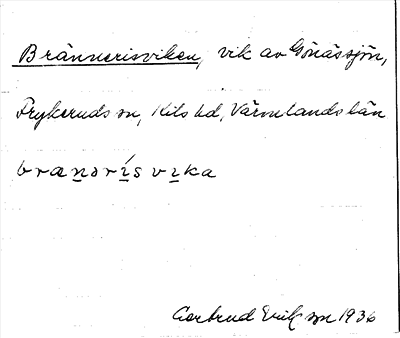 Brännerisviken, vik av Gönässjön,
Frykeruds sn, Kils hd, Värmlands län
brænərís vɩka
Gertrud Eriksson 1936